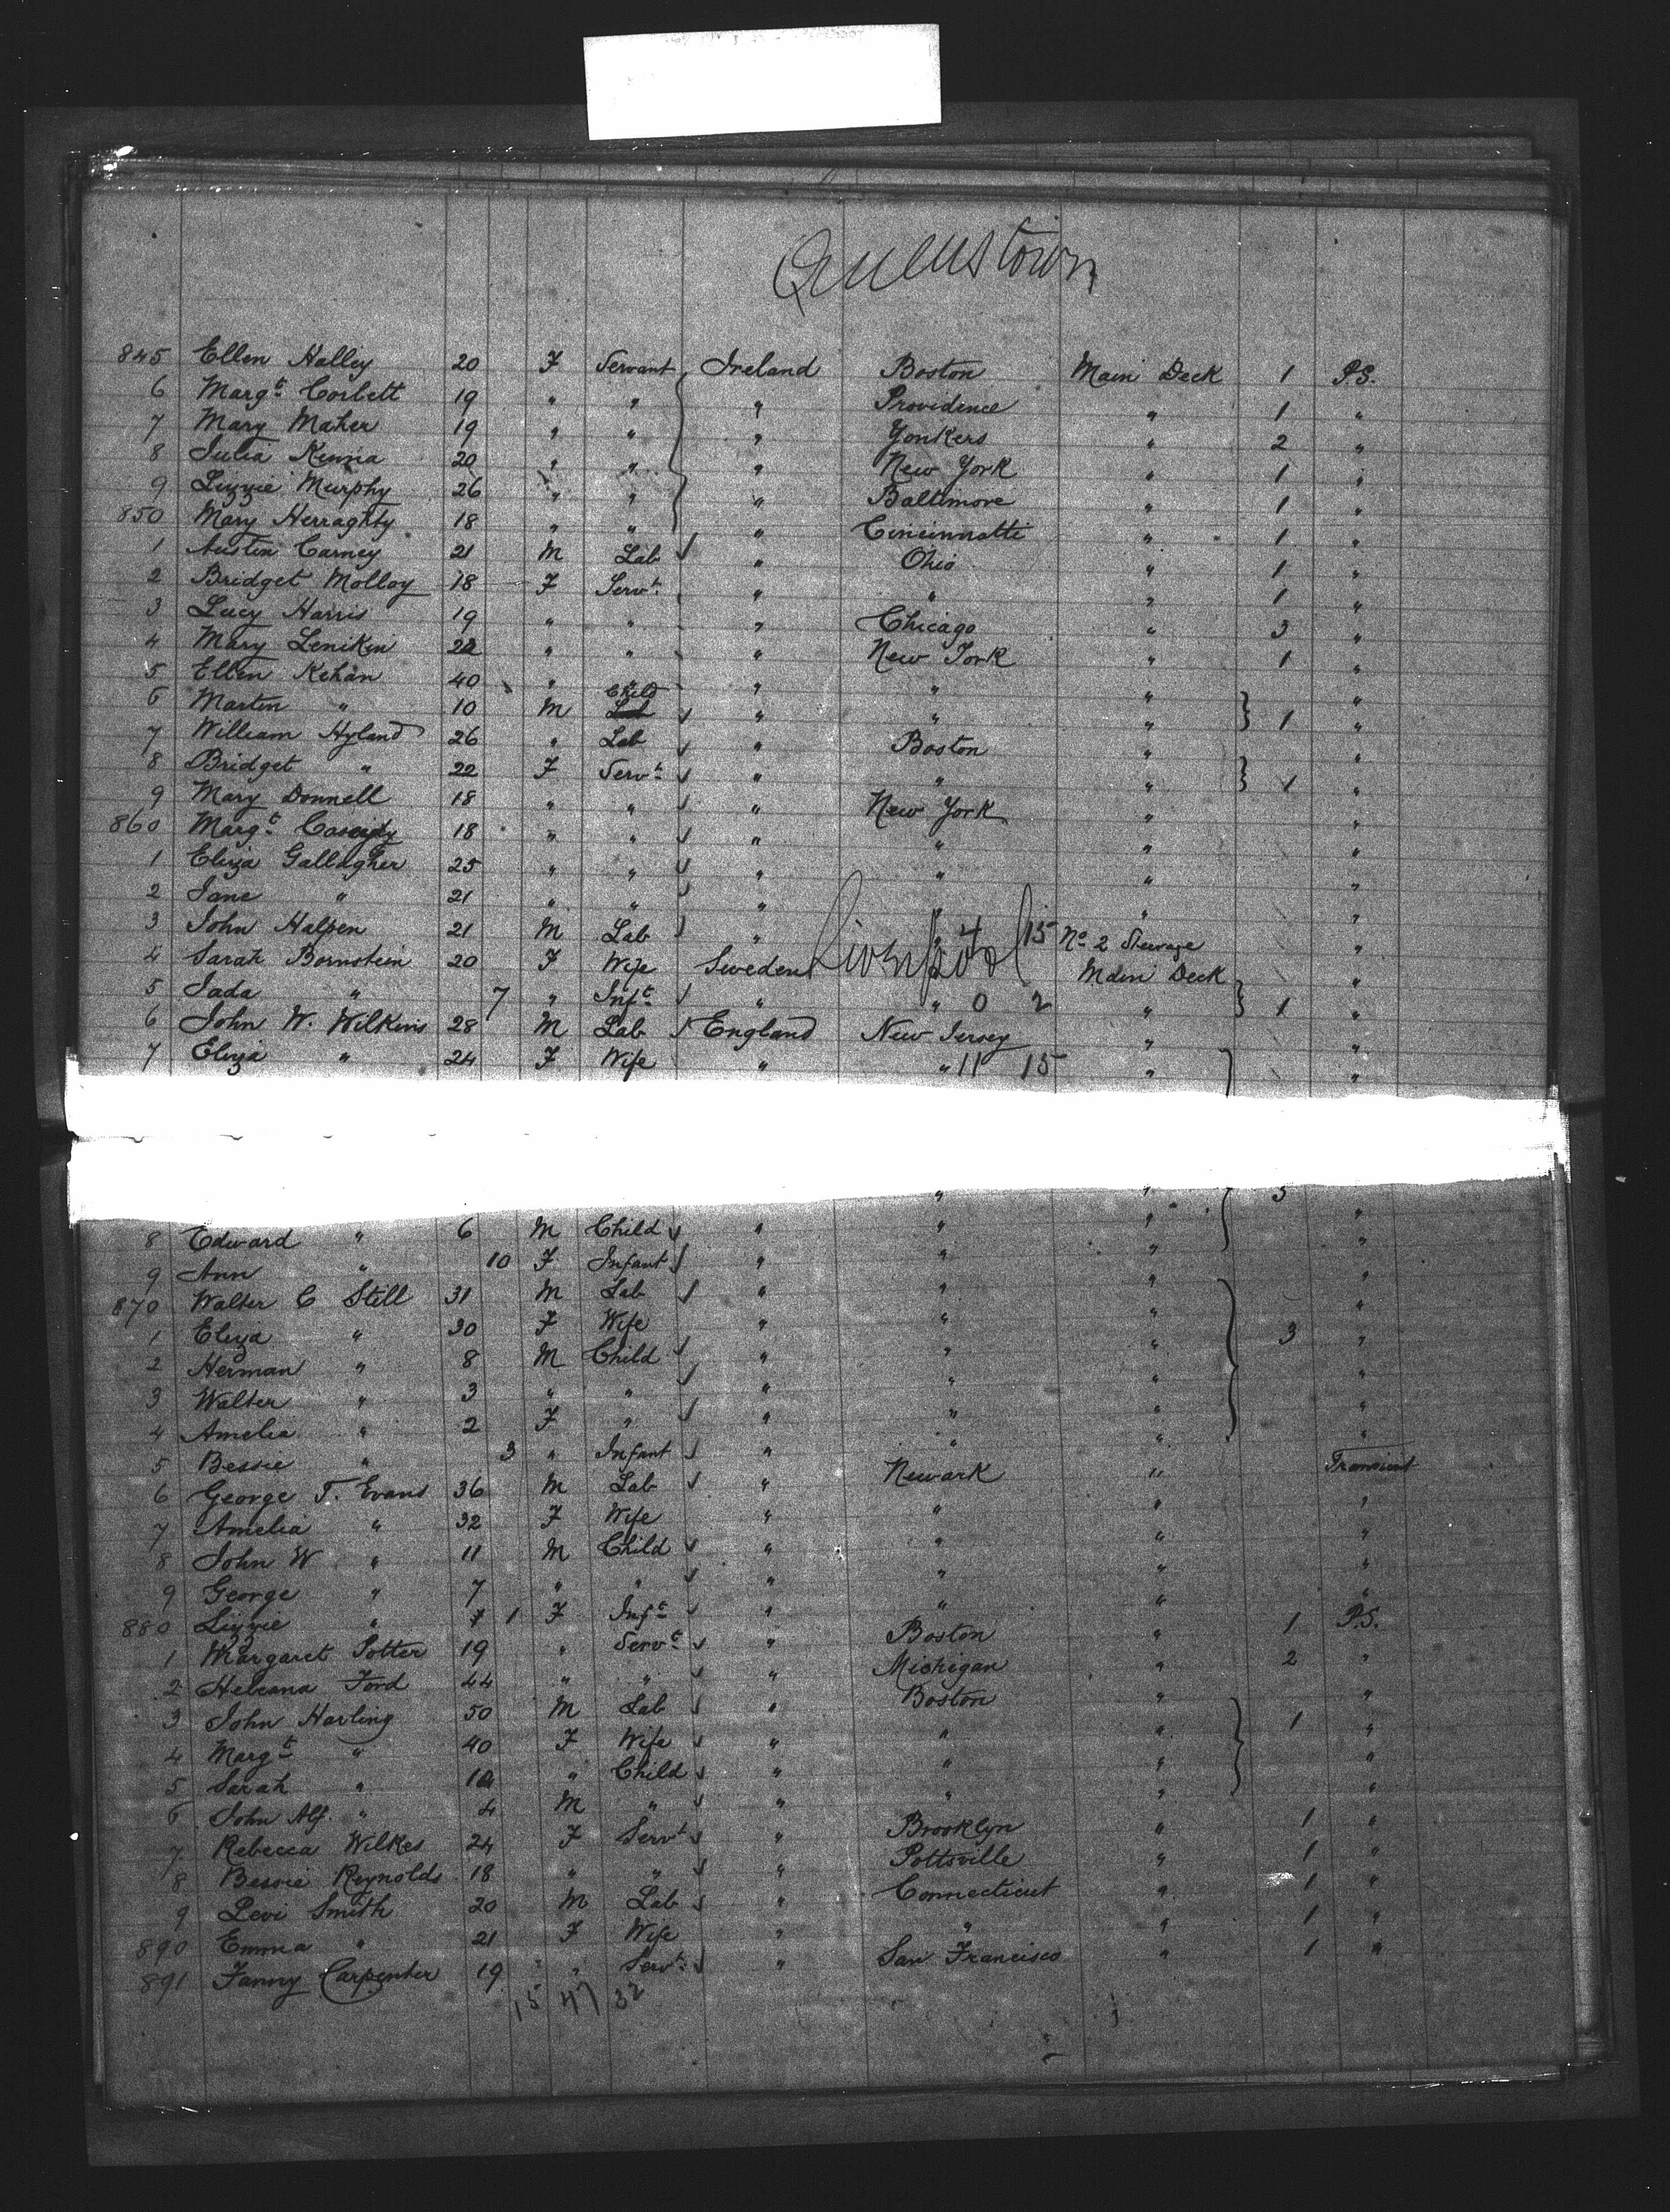 Queenstown
845 Ellen Halley 20 F Servant Ireland Boston Main Deck 1 P.S.
6 Margt Corbett 19 " " " Providence " 1 "
7 Mary Maher 19 " " " Yonkers " 2 "
8 Julia Kenna 20 " " " New York " 1 "
9 Lizzie Murphy 26 " " " Baltimore " 1 "
850 Mary Herraghty 18 " " " Cincinnatti " 1 "
1 Austin Carney 21 M Lab " Ohio " 1 "
2 Bridget Molloy 18 F Servt " " " 1 "
3 Lucy Harris 19 " " " Chicago " 3 "
4 Mary Leniken 22 " " " New York " 1 "
5 Ellen Kehan 40 " " " " " "
6 Martin " 10 M Child " " " 1 "
7 William Hyland 26 " Lab " Boston " "
8 Bridget " 22 F Servt " " " 1 "
9 Mary Donnell 18 " " " New York " "
860 Margt Cassidy 18 " " " " " "
1 Eliza Gallagher 25 " " " " " "
2 Jane " 21 " " " " " "
3 John Halpen 21 M Lab " " 4 15 No 2 Steerage "
4 Sarah Bornstein 20 F Wife Sweden Liverpool Main Deck "
5 Jada " 7 " Inft " " 0 2 " 1 "
6 John W. Wilkins 28 M Lab England New Jersey " "
7 Eliza " 24 F Wife " " 11 15 " "
" " 3
8 Edward " 6 M Child " " " "
9 Ann " 10 F Infant " " " "
870 Walter C Still 31 M Lab " " " "
1 Eliza " 30 F Wife " " " 3 "
2 Herman " 8 M Child " " " "
3 Walter " 3 " " " " " "
4 Amelia " 2 F " " " " "
5 Bessie " 3 " Infant " " " "
6 George T. Evans 36 M Lab " Newark " Transient
7 Amelia " 32 F Wife " " " "
8 John W " 11 M Child " " " "
9 George " 7 " " " " " "
880 Lizzie " 1 F Inft " " " "
1 Margaret Potter 19 " Servt " Boston " 1 P.S.
2 Heleana Ford 44 " " " Michigan " 2 "
3 John Harling 50 M Lab " Boston " "
4 Margt " 40 F Wife " " " 1 "
5 Sarah " " Child " " " "
6 John Alf. " 4 M " " " " "
7 Rebecca Wilkes 24 F Servt " Brooklyn " 1 "
8 Bessie Reynolds 18 " " " Pottsville " 1 "
9 Levi Smith 20 M Lab " Connecticut " 1 "
890 Emma " 21 F Wife " " " 1 "
891 Fanny Carpenter 19 " Servt " San Francisco " 1 "
15 47 32